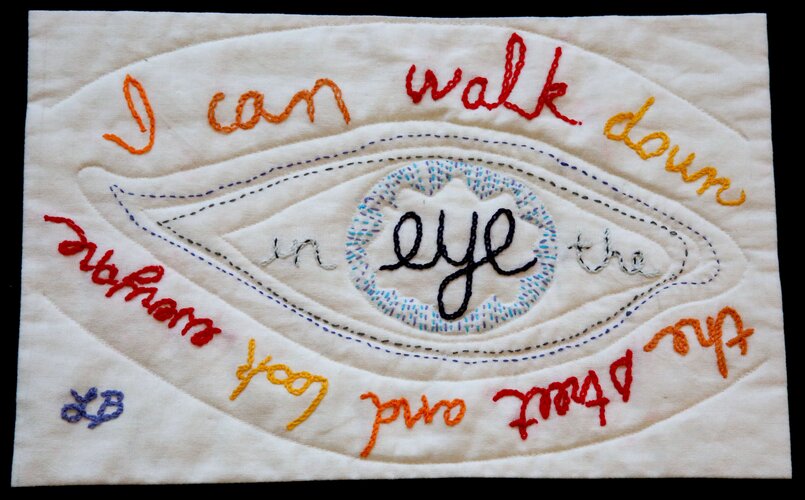 I can walk down
the street and look everyone
in the eye
LB